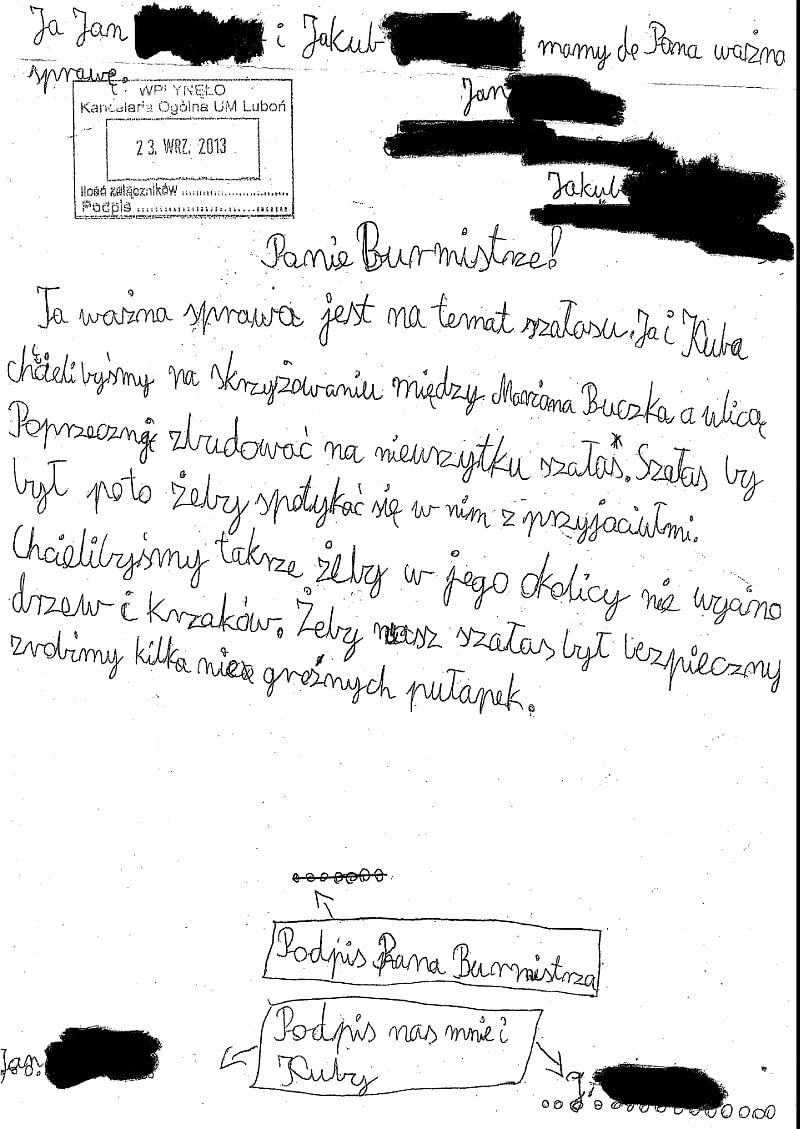 Ja Jan i Jakub mamy do Pana ważna
sprawę.
WPŁYNĘŁO
Kancelaria Ogólna UM Luboń
23. WRZ. 2013
Ilość załączników ........................
Podpis ........................
Jan
Jakub
Panie Burmistrze!
Ta ważna sprawa jest na temat szałasu. Ja i Kuba
chcielibyśmy na skrzyżowaniu między Mariana Buczka a ulicą
Poprzeczną zbudować na nieurzytku szałas*. Szałas by
był poto żeby spotykać się w nim z przyjaciułmi.
Chcielibyśmy takrze żeby w jego okolicy nie wycino
drzew i krzaków. Żeby nasz szałas był bezpieczny
zrobimy kilka nie groźnych pułapek.
Podpis Pana Burmistrza
Podpis nas mnie i
Kuby
Jan.